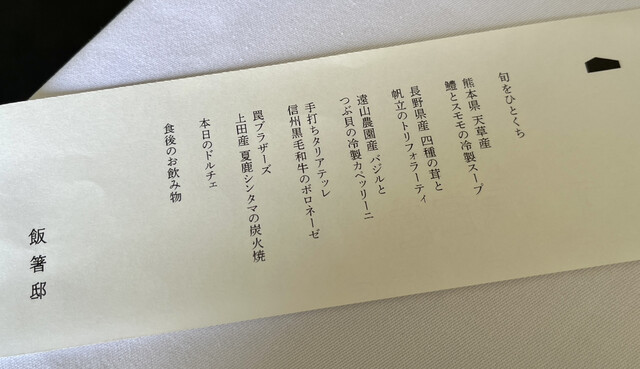 旬をひとくち
熊本県 天草産
鱧とスモモの冷製スープ
長野県産 四種の茸と
帆立のトリフォラーティ
遠山農園産 バジルと
つぶ貝の冷製カペッリーニ
手打ちタリアテッレ
信州黒毛和牛のボロネーゼ
罠ブラザーズ
上田産 夏鹿シンタマの炭火焼
本日のドルチェ
食後のお飲み物
飯箸邸